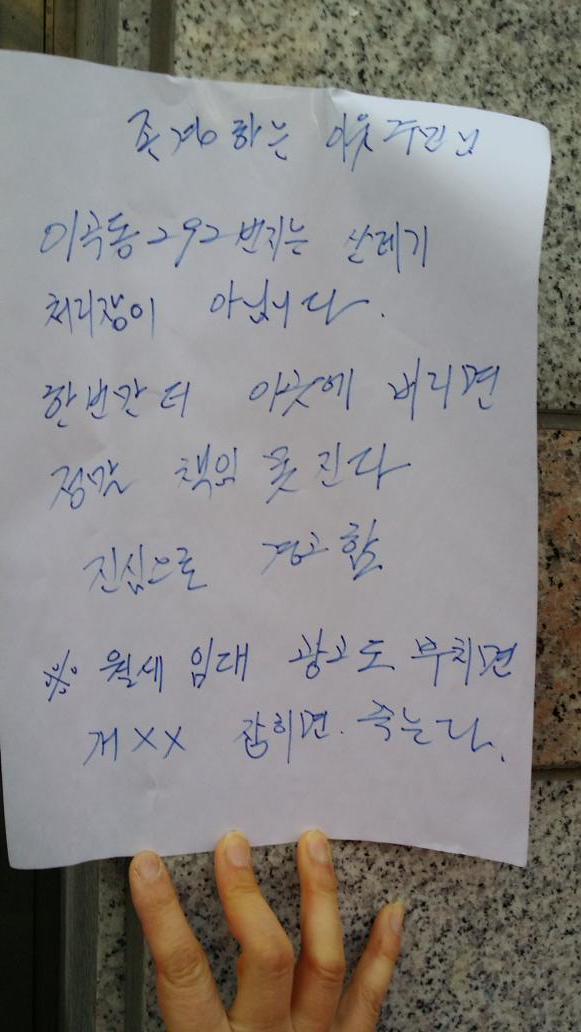 존경하는 이웃 주민님
이곡동 292번지는 쓰레기
처리장이 아닙니다.
한번만 더 이곳에 버리면
정말 책임 못 진다
진심으로 경고함
※ 월세 임대 광고도 부치면
개XX 잡히면 죽는다.